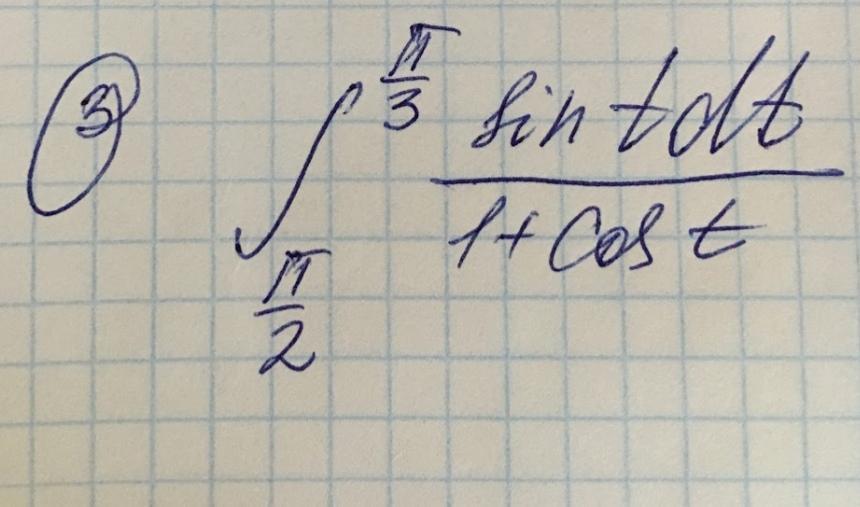 3 ∫ π/2 π/3 sin t dt / 1 + cos t